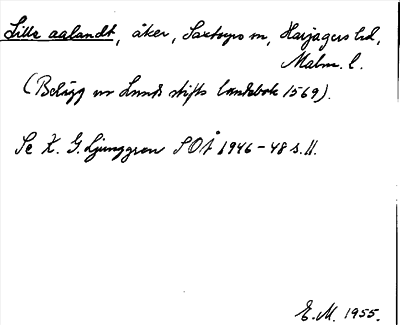 Lille aalandt, åker, Saxtorps sn, Harjagers hd,
Malm. l.
(Belägg ur Lunds stifts landebok 1569).
Se K. G. Ljunggren SOÅ 1946-48 s. 11.
E. M. 1955.